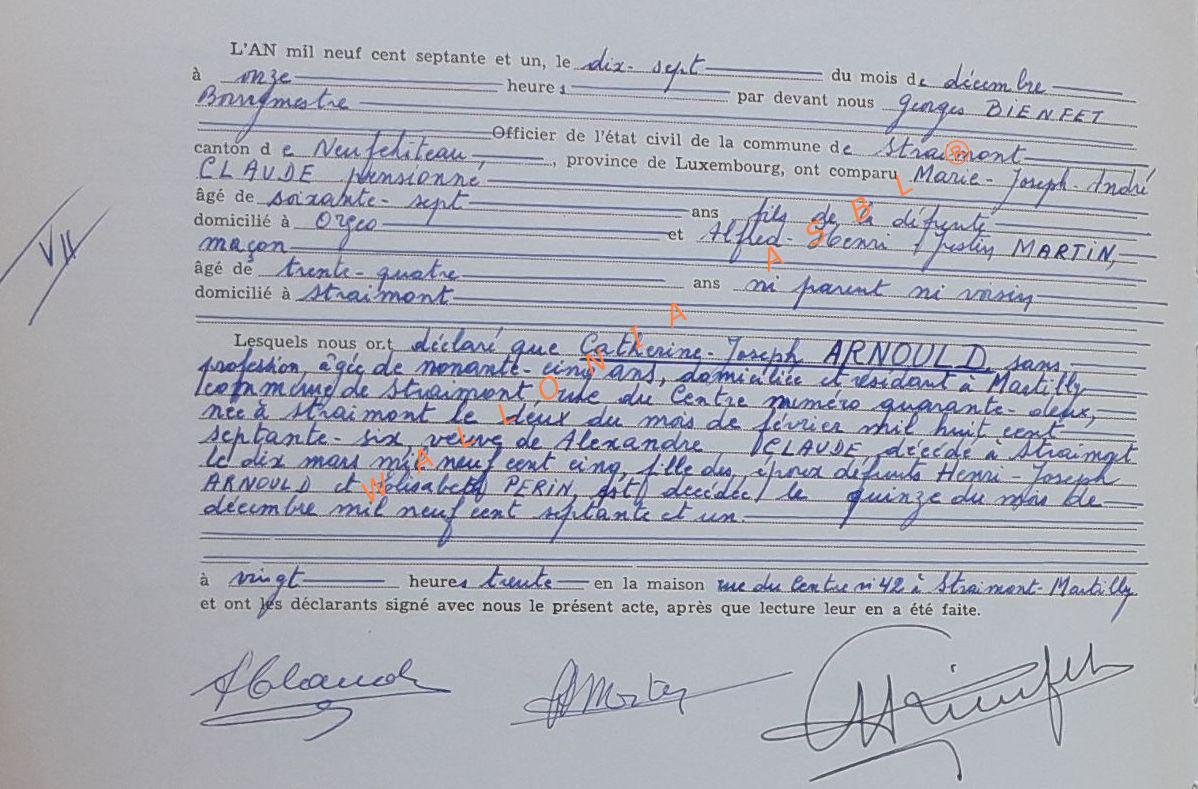 L'AN mil neuf cent septante et un, le dix-sept du mois de décembre
à onze heures par devant nous Georges BIENFET
Bourgmestre
Officier de l'état civil de la commune de Straimont
canton de Neufchâteau, province de Luxembourg, ont comparu Marie-Joseph-André
CLAUDE pensionné
âgé de soixante-sept ans fils de la défunte
domicilié à Orgeo et Alfred-Henri Justin MARTIN,
maçon
âgé de trente-quatre ans ni parent ni voisin
domicilié à Straimont
Lesquels nous ont déclaré que Catherine-Joseph ARNOULD, sans
profession, âgée de nonante-cinq ans, domiciliée et résidant à Martilly
commune de Straimont rue du Centre numéro quarante-deux,
née à Straimont le deux du mois de février mil huit cent
septante-six, veuve de Alexandre CLAUDE, décédé à Straimont
le dix mars mil neuf cent cinq, fille des époux défunts Henri-Joseph
ARNOULD et Elisabeth PERIN, est décédée le quinze du mois de
décembre mil neuf cent septante et un.
à vingt heures trente en la maison rue du Centre n° 42 à Straimont-Martilly
et ont les déclarants signé avec nous le présent acte, après que lecture leur en a été faite.
VII
WALLONIA ASBL ®